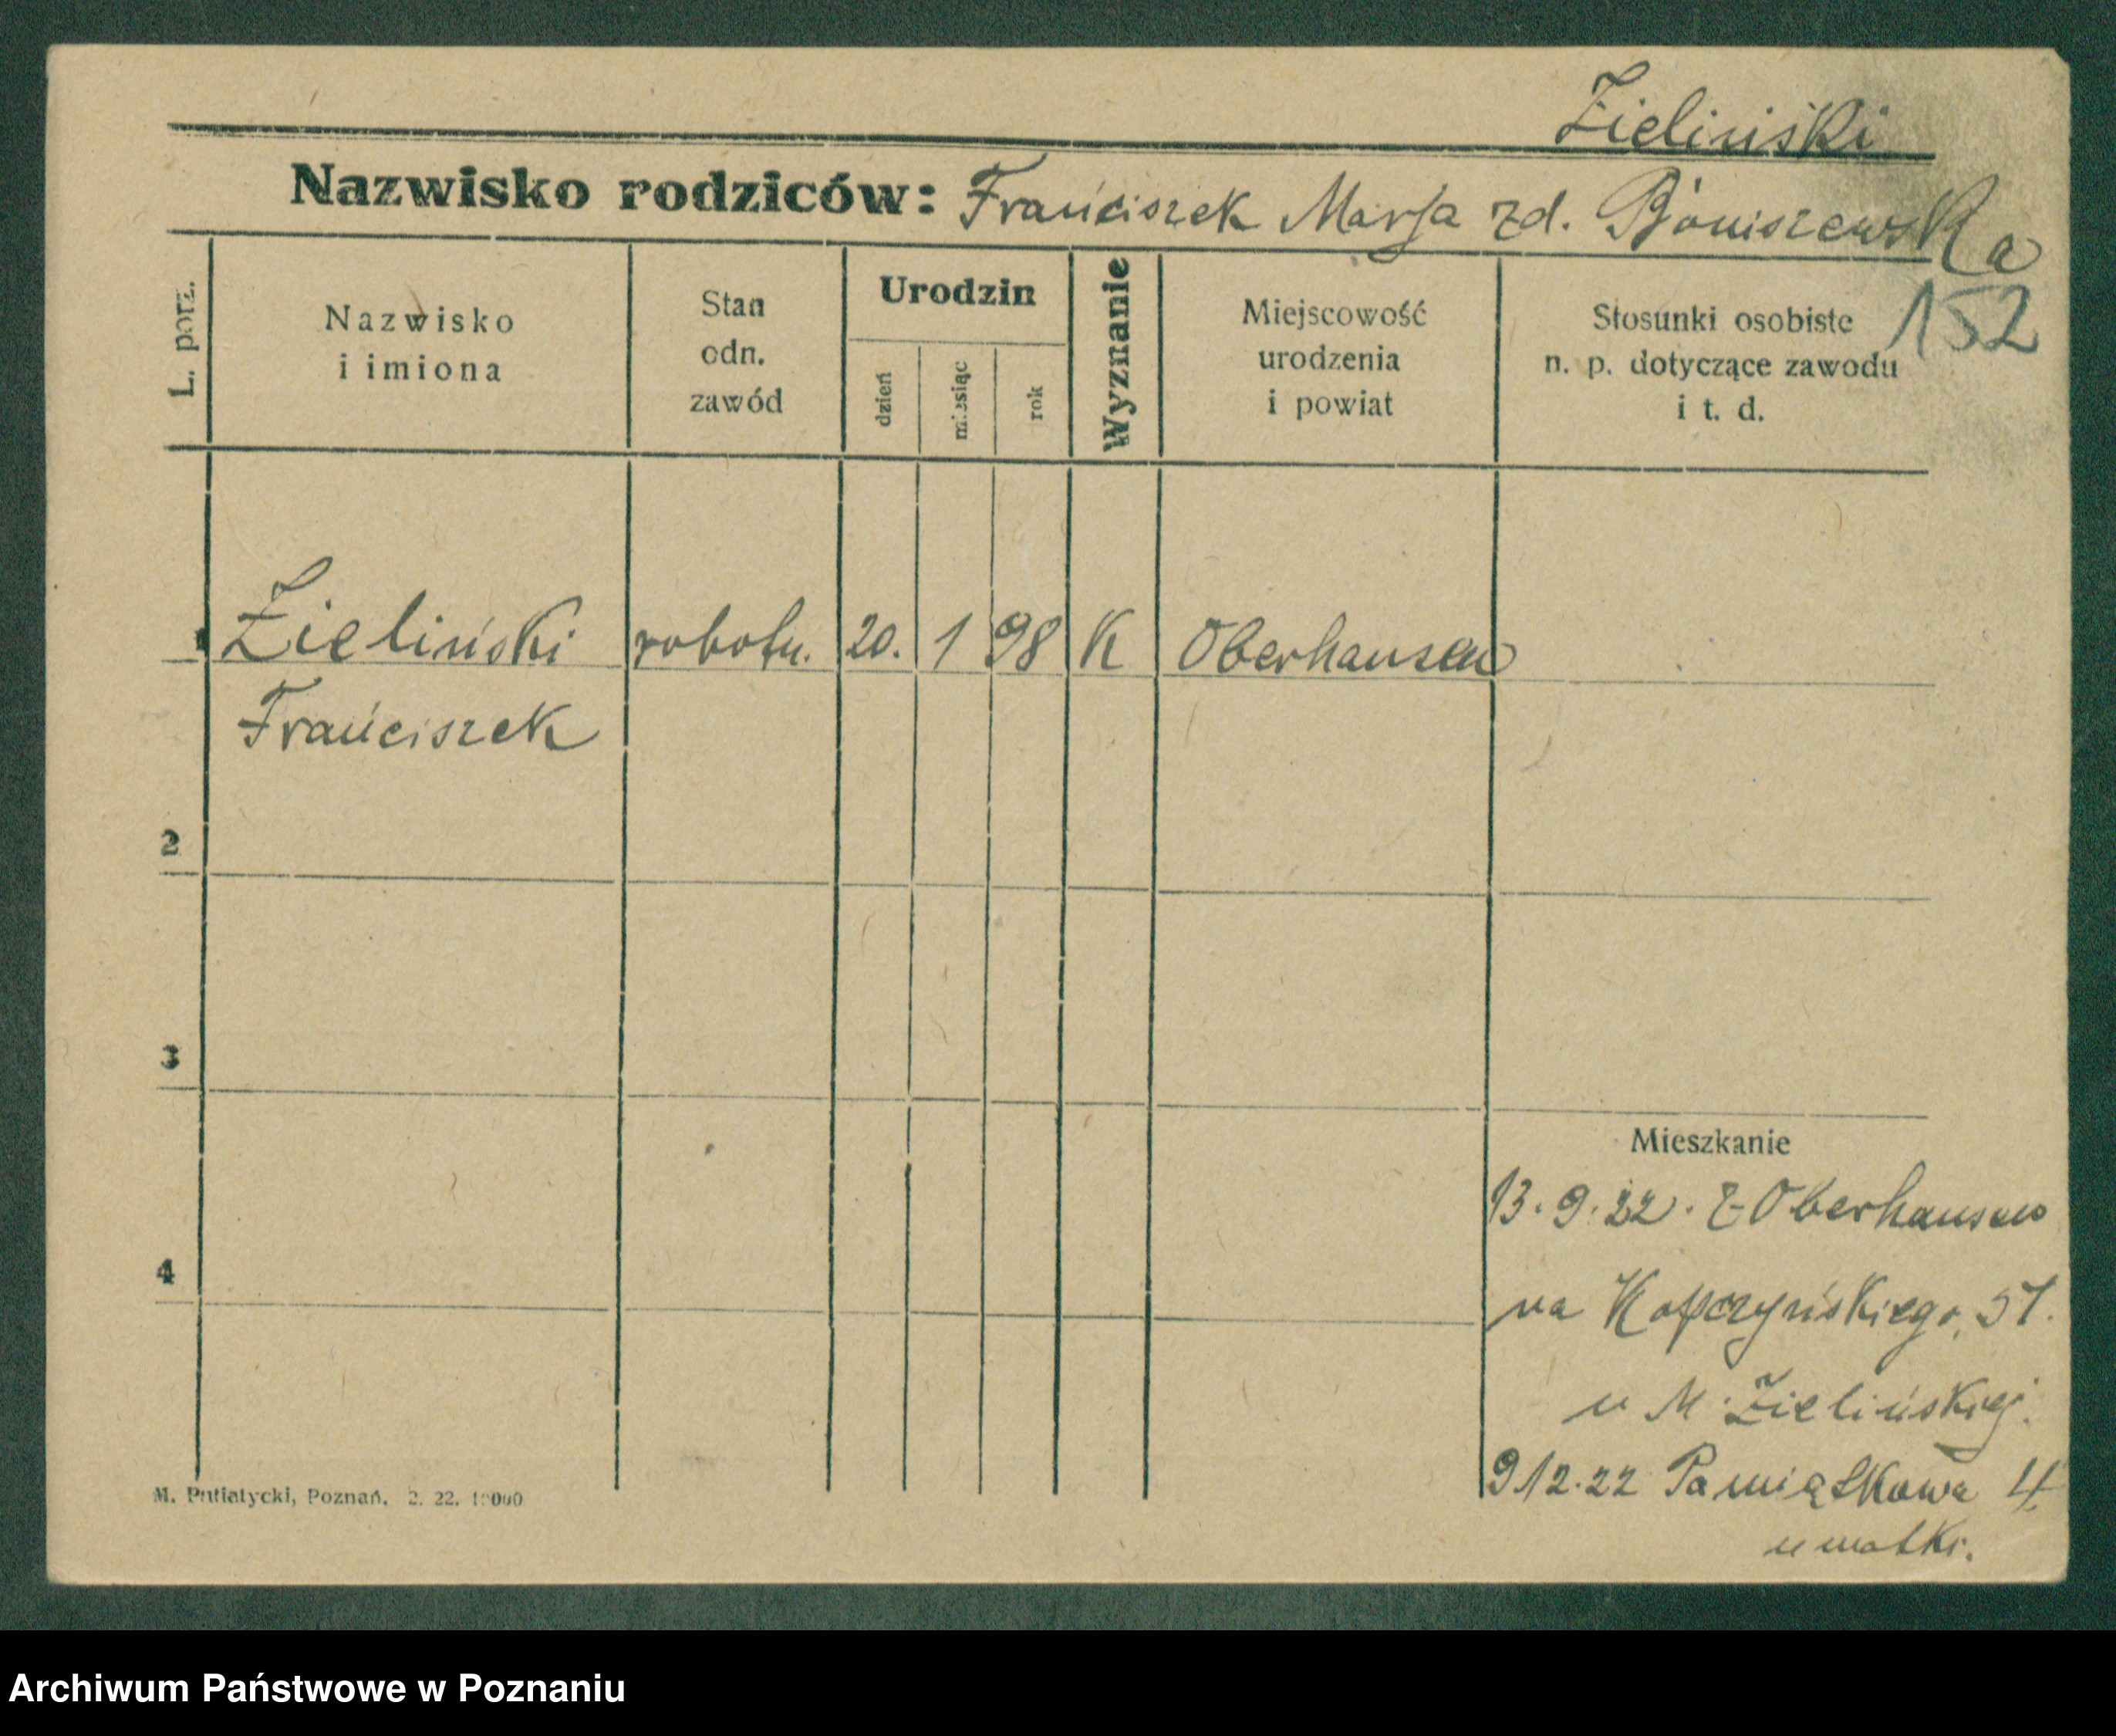 Zieliński
Nazwisko rodziców: Franciszek Marja zd. Boniszewska
152
L. porz.
Nazwisko
i imiona
Stan
odn.
zawód
Urodzin
dzień
miesiąc
rok
Wyznanie
Miejscowość
urodzenia
i powiat
Stosunki osobiste
n. p. dotyczące zawodu
i t. d.
1 Zieliński robotn. 20. 1 98 K Oberhausen
Franciszek
2
3
Mieszkanie
13. 9. 22. z Oberhausen
4
na Kopczyńskiego, 57.
u M. Zielińskiej.
9 12. 22 Pamiątkowa 4
u matki.
M. Putiatycki, Poznań. 2. 22. 10000
Archiwum Państwowe w Poznaniu